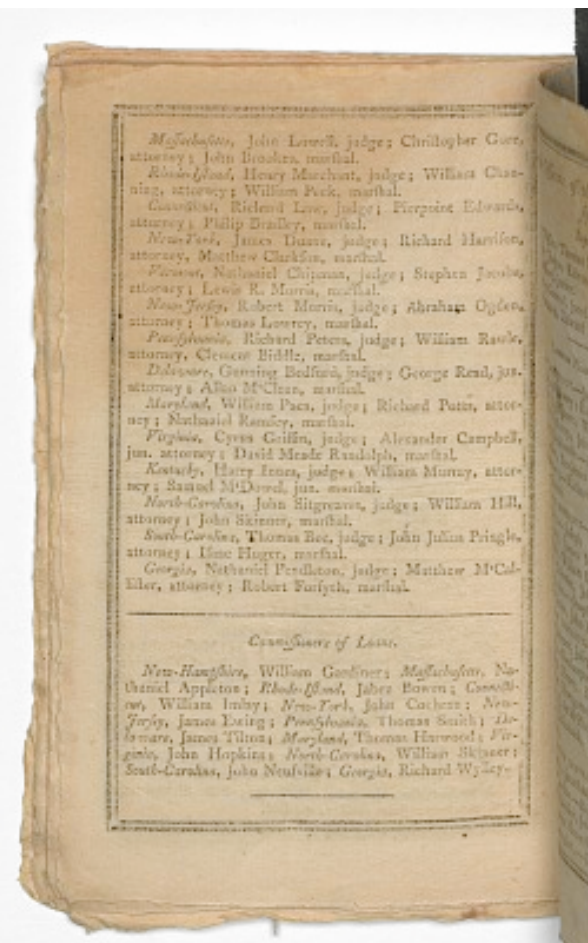 Maſſachuſetts, John Lowell, judge; Chriſtopher Gore,
attorney; John Brookes, marſhal.
Rhode-Iſland, Henry Marchant, judge; William Chan-
ning, attorney; William Peck, marſhal.
Connecticut, Richard Law, judge; Pierpoint Edwards,
attorney; Philip Bradley, marſhal.
New-York, James Duane, judge; Richard Harriſon,
attorney, Matthew Clarkſon, marſhal.
Vermont, Nathaniel Chipman, judge; Stephen Jacobs,
attorney; Lewis R. Morris, marſhal.
New-Jerſey, Robert Morris, judge; Abraham Ogden,
attorney; Thomas Lowrey, marſhal.
Pennſylvania, Richard Peters, judge; William Rawle,
attorney, Clement Biddle, marſhal.
Delaware, Gunning Bedford, judge; George Read, jun.
attorney; Allan M'Clean, marſhal.
Maryland, William Paca, judge; Richard Potts, attor-
ney; Nathaniel Ramſey, marſhal.
Virginia, Cyrus Griffin, judge; Alexander Campbell,
jun. attorney; David Meade Randolph, marſhal.
Kentucky, Harry Innes, judge; William Murray, attor-
ney; Samuel M'Dowel, jun. marſhal.
North-Carolina, John Sitgreaves, judge; William Hill,
attorney; John Skinner, marſhal.
South-Carolina, Thomas Bee, judge; John Julius Pringle,
attorney; Iſaac Huger, marſhal.
Georgia, Nathaniel Pendleton, judge; Matthew M'Cal-
liſter, attorney; Robert Forſyth, marſhal.
Commiſſioners of Loans.
New-Hampſhire, William Gardiner; Maſſachuſetts, Na-
thaniel Appleton; Rhode-Iſland, Jabez Bowen; Connecti-
cut, William Imlay; New-York, John Cochran; New-
Jerſey, James Ewing; Pennſylvania, Thomas Smith; De-
laware, James Tilton; Maryland, Thomas Harwood; Vir-
ginia, John Hopkins; North-Carolina, William Skinner;
South-Carolina, John Neufville; Georgia, Richard Wylley.